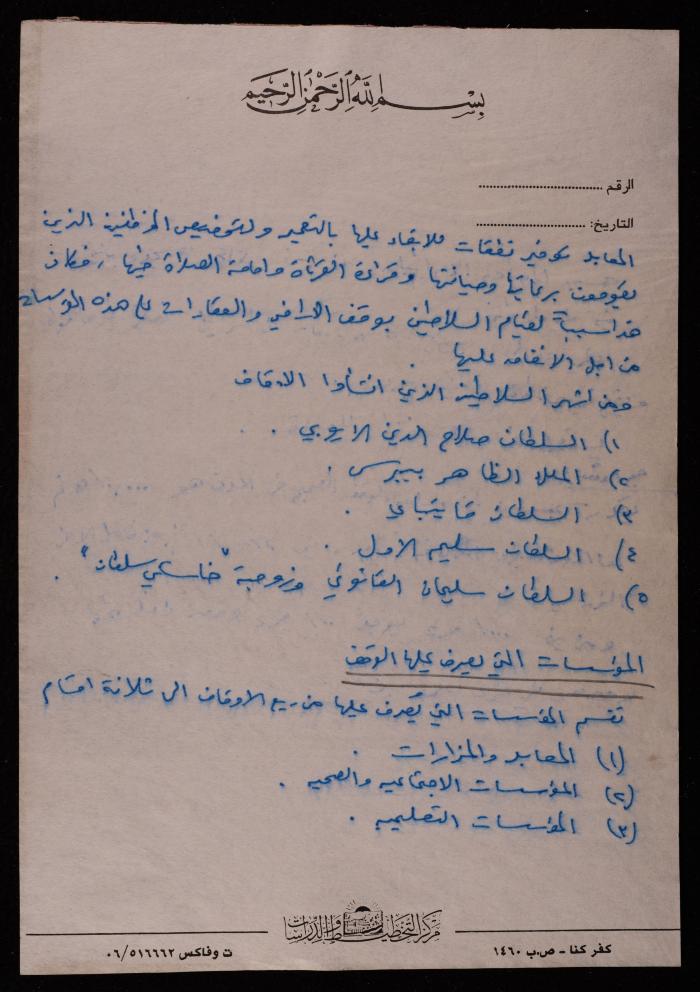 بسم الله الرحمن الرحيم
الرقم ....................
التاريخ: ....................
المعابد بتوفير نفقات للابقاء عليها بالتعمير ولتخصيص الموظفين الذين
يقومون برعايتها وصيانتها وقراءة القرآن وامامة الصلاة فيها، فكان
هذا سبباً لقيام السلاطين بوقف الاراضي والعقارات على هذه المؤسسات
من اجل الانفاق عليها
ومن اشهر السلاطين الذين انشأوا الاوقاف
١) السلطان صلاح الدين الايوبي .
٢) الملك الظاهر بيبرس .
٣) السلطان قايتباي .
٤) السلطان سليم الاول .
٥) السلطان سليمان القانوني وزوجته "خاسكي سلطان" .
المؤسسات التي يصرف عليها الوقف
تقسم المؤسسات التي يُصرف عليها من ريع الاوقاف الى ثلاثة اقسام
(١) المعابد والمزارات .
(٢) المؤسسات الاجتماعيه والصحيه .
(٣) المؤسسات التعليميه .
مركز التخطيط والدراسات
كفر كنا - ص.ب ١٤٦٠
ت وفاكس ٠٦/٥١٦٦٦٢